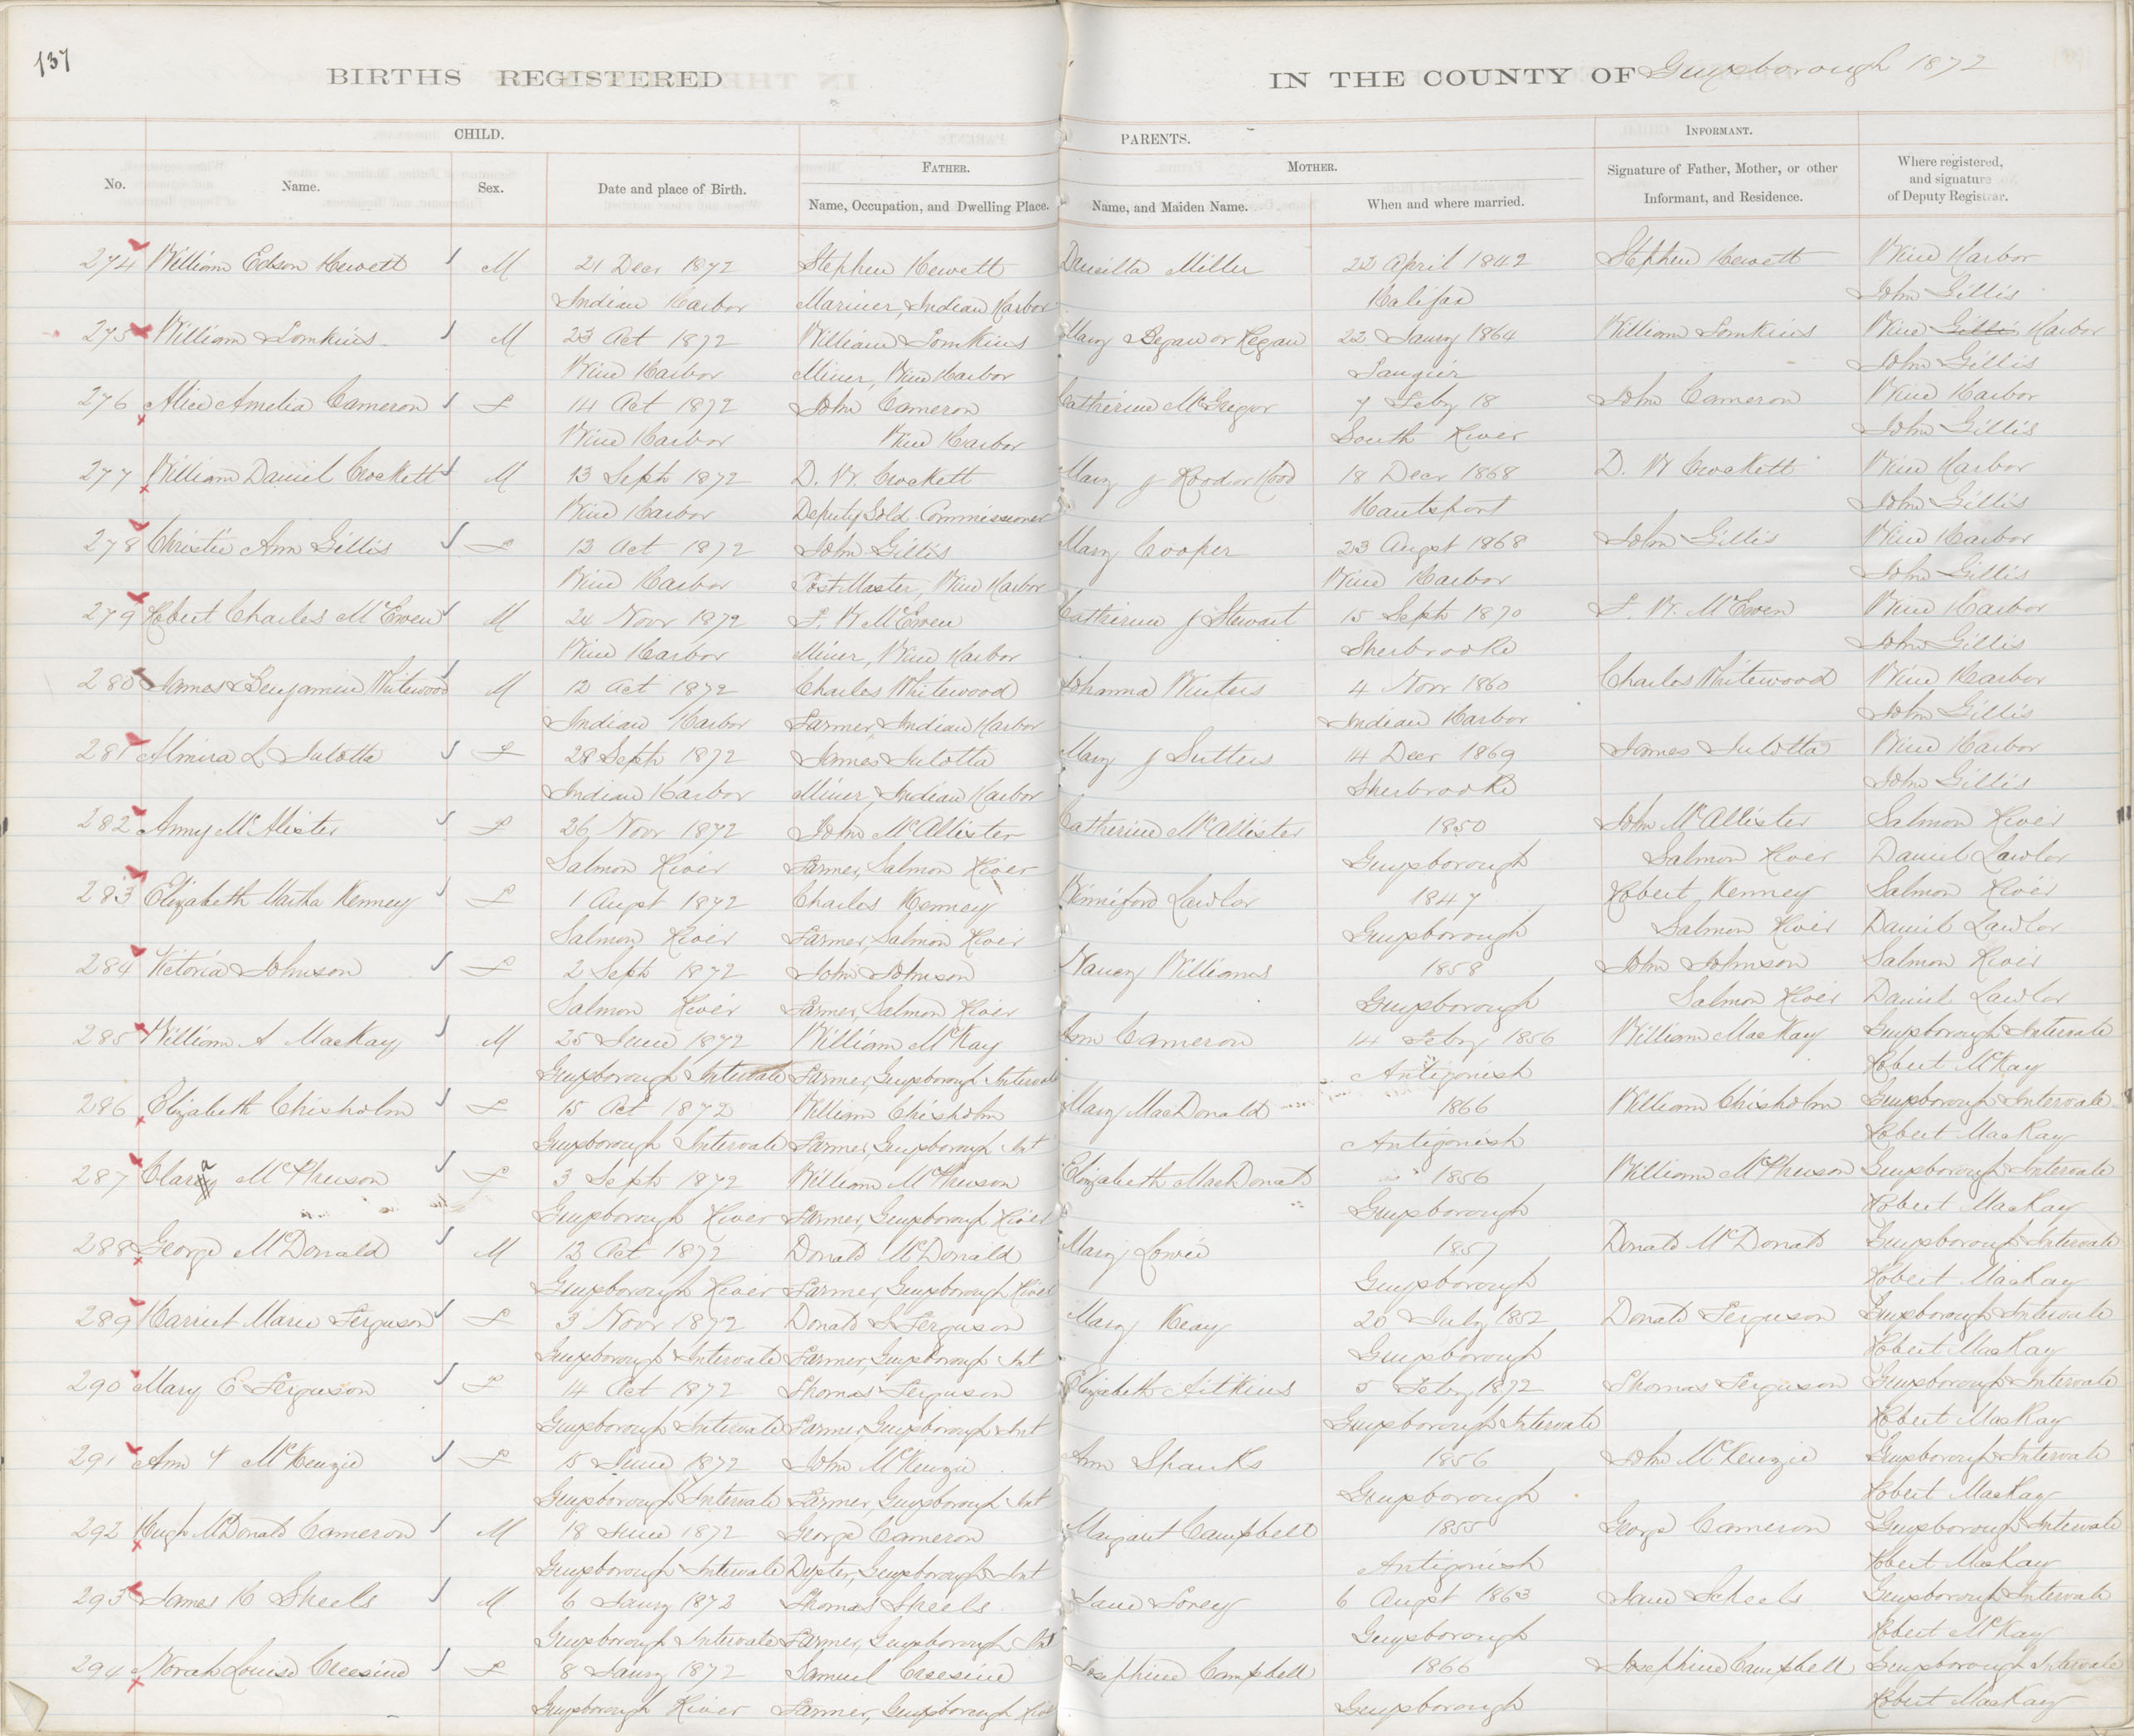 137
BIRTHS REGISTERED IN THE COUNTY OF Guysborough 1872
CHILD. PARENTS. INFORMANT.
No. Name. Sex. Date and place of Birth. FATHER. Name, Occupation, and Dwelling Place. MOTHER. Name, and Maiden Name. When and where married. Signature of Father, Mother, or other Informant, and Residence. Where registered, and signature of Deputy Registrar.
274 William Edson Hewett M 21 Decr 1872 Stephen Hewett Miller 22 April 1842 Stephen Hewett Wine Harbor
Indian Harbor Mariner, Indian Harbor Halifax John Gillis
275 William Tomkins M 23 Oct 1872 William Tomkins Mary Began or Regan 22 Jany 1864 William Tomkins Wine Gillis Harbor
Wine Harbor Miner, Wine Harbor Tangier John Gillis
276 Alice Amelia Cameron F 14 Oct 1872 John Cameron Catherine McGregor 7 Feby 18 John Cameron Wine Harbor
Wine Harbor Wine Harbor South River John Gillis
277 William Daniel Crockett M 13 Sept 1872 D. W. Crockett Mary J Rood or Hood 18 Decr 1868 D. W Crockett Wine Harbor
Wine Harbor Deputy Gold Commissioner Hantsport John Gillis
278 Christie Ann Gillis F 13 Oct 1872 John Gillis Mary Cooper 23 Augst 1868 John Gillis Wine Harbor
Wine Harbor Post Master, Wine Harbor Wine Harbor John Gillis
279 Robert Charles McEwen M 24 Novr 1872 F. W McEwen Catherine J Stewart 15 Sept 1870 F. W. McEwen Wine Harbor
Wine Harbor Miner, Wine Harbor Sherbrooke John Gillis
280 James Benjamin Whitewood M 12 Oct 1872 Charles Whitewood Johanna Winters 4 Novr 1860 Charles Whitewood Wine Harbor
Indian Harbor Farmer, Indian Harbor Indian Harbor John Gillis
281 Almira L F 28 Sept 1872 James Mary J Sutters 14 Decr 1869 James Wine Harbor
Indian Harbor Miner, Indian Harbor Sherbrooke John Gillis
282 Anny McAlister F 26 Novr 1872 John McAllister Catherine McAllister 1850 John McAllister Salmon River
Salmon River Farmer, Salmon River Guysborough Salmon River Daniel Lawlor
283 Elizabeth Martha Kenney F 1 Augst 1872 Charles Kenney Winniford Lawlor 1847 Robert Kenney Salmon River
Salmon River Farmer, Salmon River Guysborough Salmon River Daniel Lawlor
284 Victoria Johnson F 2 Sept 1872 John Johnson Nancy Williams 1858 John Johnson Salmon River
Salmon River Farmer, Salmon River Guysborough Salmon River Daniel Lawlor
285 William A MacKay M 25 June 1872 William McKay Ann Cameron 14 Feby 1856 William MacKay Guysborough Intervale
Guysborough Intervale Farmer, Guysborough Intervale Antigonish Robert McKay
286 Elizabeth Chisholm F 15 Oct 1872 William Chisholm Mary MacDonald 1866 William Chisholm Guysborough Intervale
Guysborough Intervale Farmer, Guysborough Int Antigonish Robert MacKay
287 Clara McPherson F 3 Sept 1872 William McPherson Elizabeth MacDonald 1856 William McPherson Guysborough Intervale
Guysborough River Farmer, Guysborough River Guysborough Robert MacKay
288 George McDonald M 12 Oct 1872 Donald McDonald Mary Lowrie 1857 Donald McDonald Guysborough Intervale
Guysborough River Farmer, Guysborough River Guysborough Robert MacKay
289 Harriet Marie Ferguson F 3 Novr 1872 Donald S Ferguson Mary Keay 20 July 1852 Donald Ferguson Guysborough Intervale
Guysborough Intervale Farmer, Guysborough Int Guysborough Robert MacKay
290 Mary E Ferguson F 14 Oct 1872 Thomas Ferguson Elizabeth Aitkins 5 Feby 1872 Thomas Ferguson Guysborough Intervale
Guysborough Intervale Farmer, Guysborough Int Guysborough Intervale Robert MacKay
291 Ann McKenzie F 15 June 1872 John McKenzie Ann Shanks 1856 John McKenzie Guysborough Intervale
Guysborough Intervale Farmer, Guysborough Int Guysborough Robert MacKay
292 Hugh McDonald Cameron M 18 June 1872 George Cameron Margaret Campbell 1855 George Cameron Guysborough Intervale
Guysborough Intervale Dyster, Guysborough Int Antigonish Robert MacKay
293 James H Sheels M 6 Jany 1872 Thomas Sheels Jane Torey 6 Augst 1863 Jane Scheels Guysborough Intervale
Guysborough Intervale Farmer, Guysborough Int Guysborough Robert McKay
294 Norah Louise Creesine F 8 Jany 1872 Samuel Creesine Josephine Campbell 1866 Josephine Campbell Guysborough Intervale
Guysborough River Farmer, Guysborough River Guysborough Robert MacKay